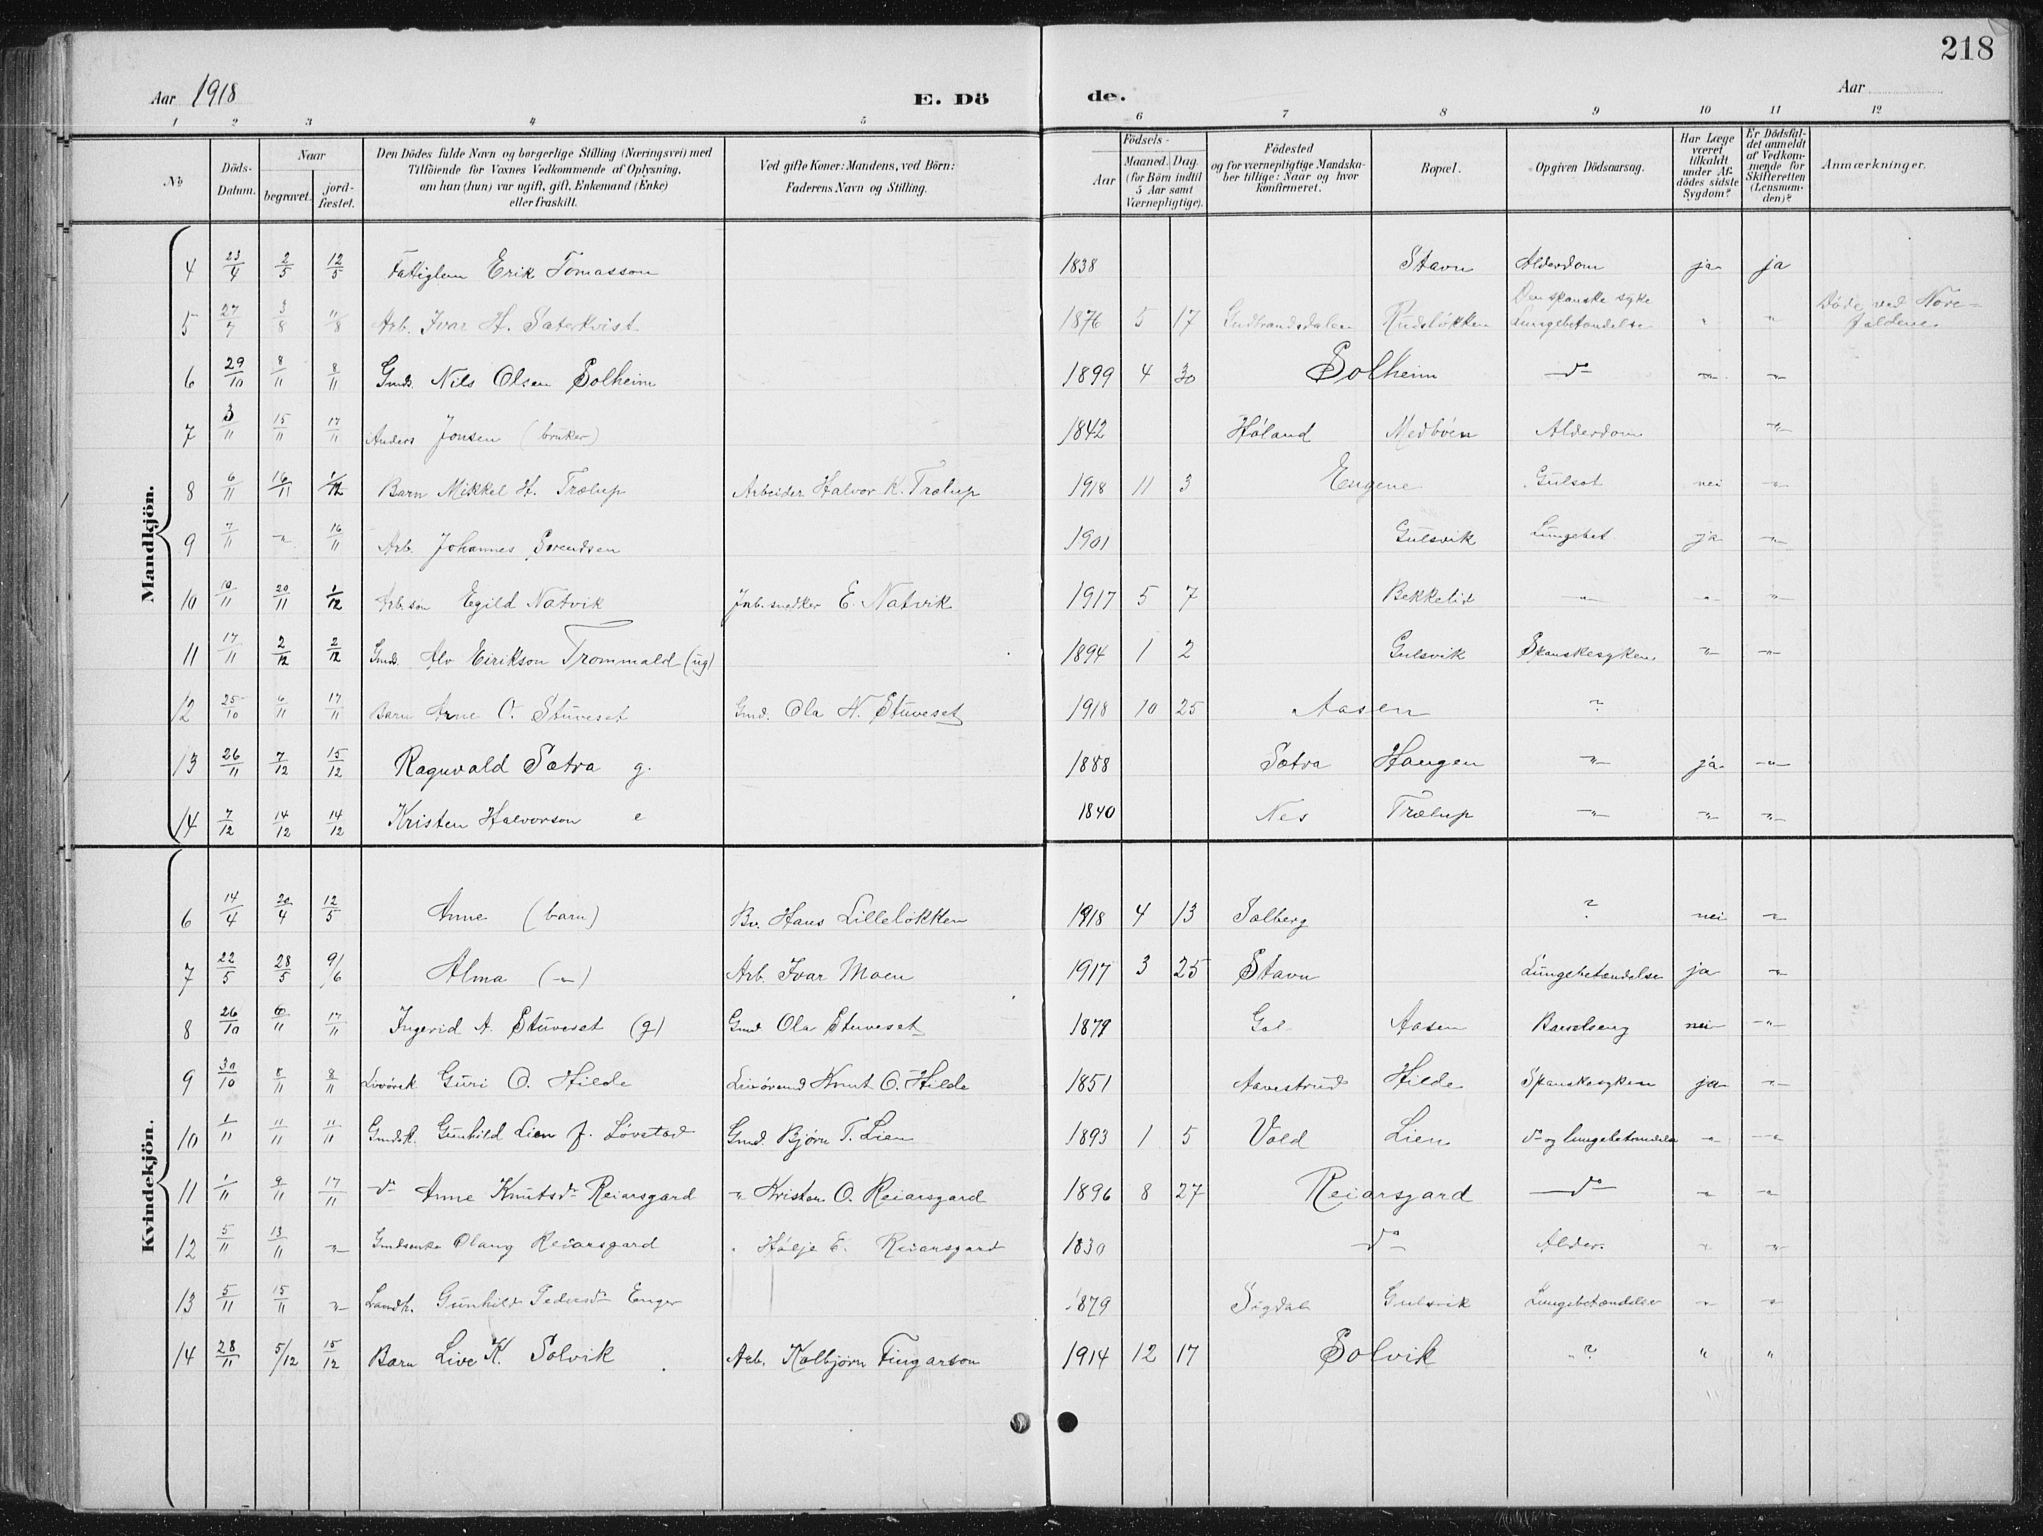 218
Aar 1918
E. Dö
de.
Aar
1 2 3 4 5 6 7 8 9 10 11 12
No
Döds-Datum.
Naar
begravet.
jord-fæstet.
Den Dödes fulde Navn og borgerlige Stilling (Næringsvei) med
Tilföiende for Voxnes Vedkommende af Oplysning,
om han (hun) var ugift, gift, Enkemand (Enke)
eller fraskilt.
Ved gifte Koner: Mandens, ved Börn:
Faderens Navn og Stilling.
Födsels-
Aar
Maaned. Dag
(for Börn indtil
5 Aar samt
Værnepligtige).
Födested
og for værnepligtige Mandska-
ber tillige: Naar og hvor
konfirmeret.
Bopæl.
Opgiven Dödsaarsag.
Har Læge
været
tilkaldt
under Af-
dödes sidste
Sygdom?
Er Dödsfal-
det anmeldt
af Vedkom-
mende for
Skifteretten
(Lensman-
den)?
Anmærkninger.
Mandkjön.
4 23/4 2/5 12/5 Fattiglem Erik Tomasson 1838 Stavn Alderdom ja ja
5 27/7 3/8 11/8 Arb. Ivar H. Säterkvist 1876 5 17 Gudbrandsdalen Rudsløkken Den spanske syke Lungebetændelse " " Döde ved Nore-fjeldene
6 29/10 8/11 8/11 Gmd. Nils Olsen Solheim 1899 4 30 Solheim do " "
7 3/11 15/11 17/11 Anders Jonsen (bruker) 1842 Høland Medbøen Alderdom "
8 6/11 16/11 1/12 Barn Mikkel H. Trælup Arbeider Halvor K. Trælup 1918 11 3 Eugene Gulsot nei "
9 7/11 " 16/11 Arb. Johannes Sorendsen 1901 Gulsvik Lungebet ja "
10 10/11 20/11 1/12 Arb.søn Egild Nätvik Jnb.snedker E. Nätvik 1917 5 7 Bekkelid " " "
11 17/11 2/12 2/12 Gmd. Alv Eirikson Trommald (ug) 1894 1 2 Gulsvik Spanskesyken. " "
12 25/10 6/11 17/11 Barn Arne O. Stuveset Gmd. Ola N. Stuveset 1918 10 25 Aasen ?
13 26/11 7/12 15/12 Ragnvald Sætra g. 1888 Sætra Haugen " ja "
14 7/12 14/12 14/12 Kristen Halvorson e 1840 Nes Trælup " " "
Kvindekjön.
6 14/4 20/4 12/5 Anne (barn) Bv. Hans Lilleløkken 1918 4 13 Solberg ? nei "
7 22/5 28/5 9/6 Alma (") Arb. Ivar Moen 1917 3 25 Stavn Lungebetændelse ja "
8 26/10 6/11 17/11 Ingerid A. Stuveset (g) Gmd Ola Stuveset 1879 Gol Aasen Barselseng nei "
9 30/10 8/11 8/11 Guri O. Hilde Knut O. Hilde 1851 Aavestrud Hilde Spanskesyken ja "
10 1/11 11/11 11/11 Gmdsk. Gunhild Lien f. Løvstad Gmd. Bjørn T. Lien 1893 1 5 Vold Lien do og lungebetændelse " "
11 1/11 9/11 17/11 do Anne Knutsdr Reiarsgard " Kristen O. Reiarsgard 1896 8 27 Reiarsgard do " "
12 5/11 13/11 " Gmdsenke Olaug Reiarsgard " Hølje E. Reiarsgard 1830 do Alder. " "
13 5/11 15/11 " Landh. Gunhild Pedersdr Enger 1879 Sigdal Gulsvik Lungebetændelse " "
14 28/11 5/12 15/12 Barn Live K. Solvik Arb. Kolbjørn Fingarson 1914 12 17 Solvik ? " "